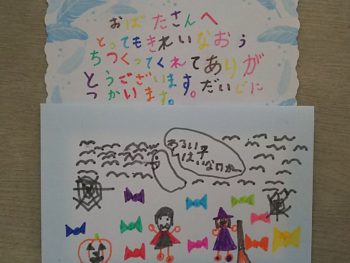 おばたさんへ
とってもきれいなおう
ちつくってくれてありが
とうございます。だいじに
つかいます。